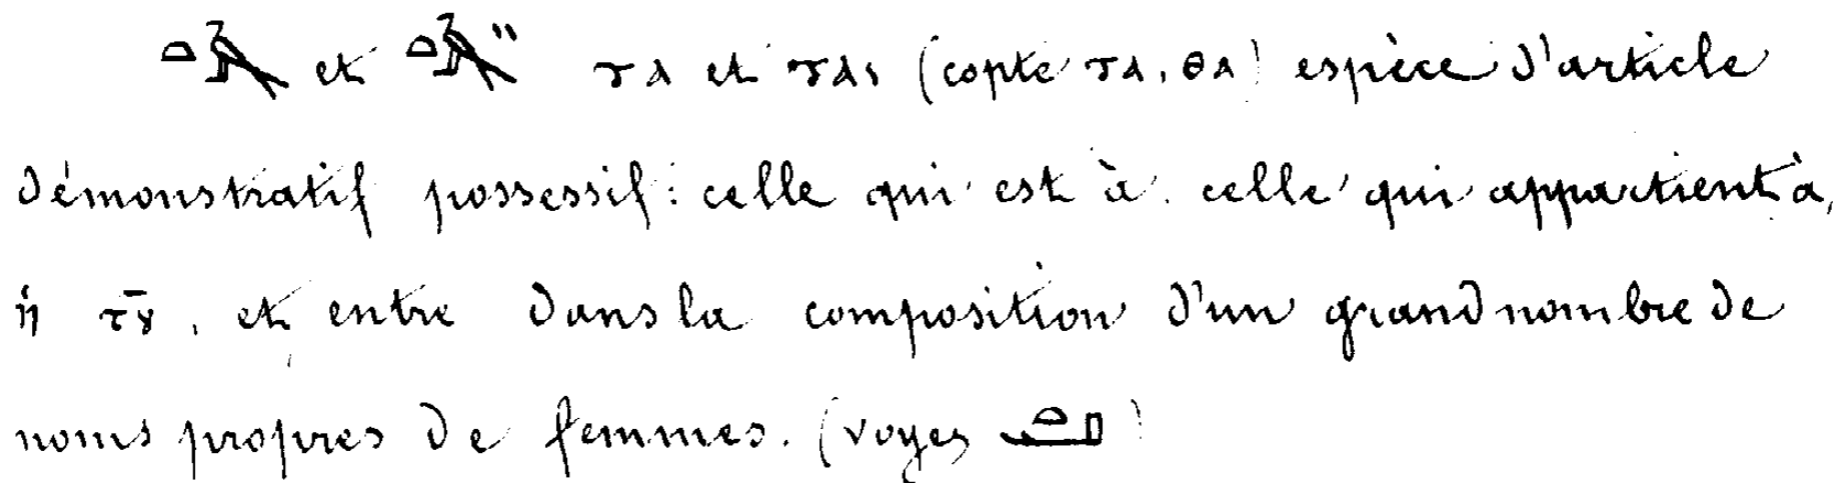 𓏏𓅮 et 𓏏𓅮" ⲧⲁ et ⲧⲁⲓ (copte ⲧⲁ, ⲑⲁ) espèce d'article
démonstratif possessif: celle qui est à. celle qui appartient à,
ἡ τȣ, et entre dans la composition d'un grand nombre de
noms propres de femmes. (voyez )